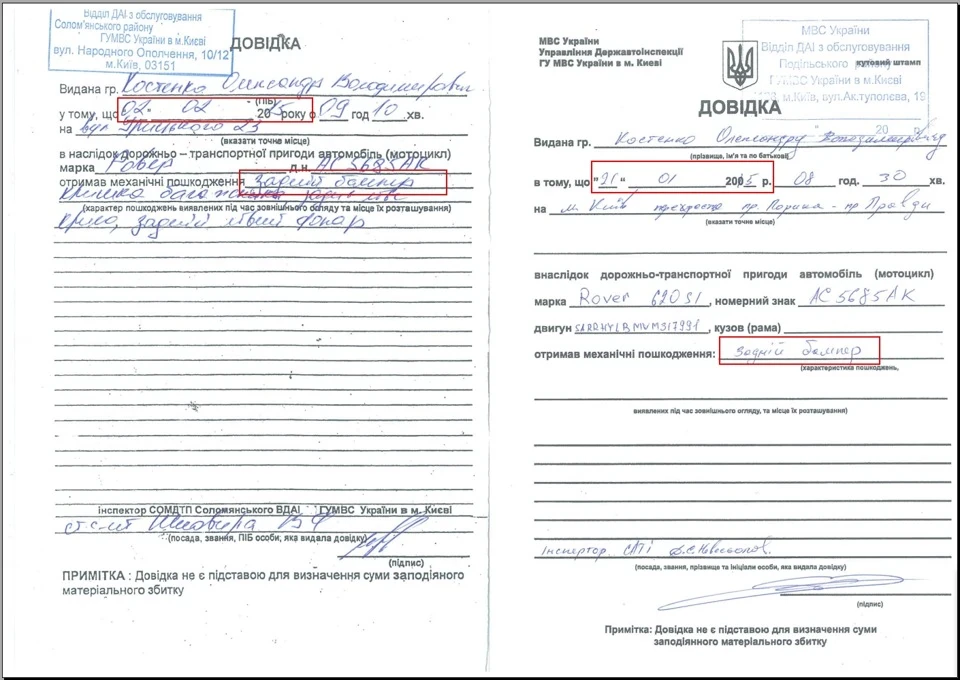 Відділ ДАІ з обслуговування
Солом'янського району
ГУМВС України в м.Києві
вул. Народного Ополчення, 10/12
м.Київ, 03151
ДОВІДКА
Видана гр. Костенко Олександр Володимирович
(ПІБ)
у тому, що 02. 02 2015 року о 09 год 10 хв.
на вул 23
(вказати точне місце)
в наслідок дорожньо – транспортної пригоди автомобіль (мотоцикл)
марка Ровер д.н. АС 5685 АК
отримав механічні пошкодження задній бампер
кришка багажника заднє
(характер пошкоджень виявлених під час зовнішнього огляду та місце їх розташування)
крило, задній лівий фонар
інспектор СОМДТП Солом'янського ВДАІ ГУМВС України в м. Києві
ст с-нт
(посада, звання, ПІБ особи, яка видала довідку)
(підпис)
ПРИМІТКА : Довідка не є підставою для визначення суми заподіяного
матеріального збитку
МВС України
Управління Державтоінспекції
ГУ МВС України в м. Києві
МВС України
Відділ ДАІ з обслуговування
Подільського району
ГУМВС України в м.Києві
м.Київ, вул.Ак.туполєва, 19
кутовий штамп
" 20
ДОВІДКА
Видана гр. Костенко Олександру Володимировичу
(прізвище, ім'я та по батькові)
в тому, що "21" 01 2005 р. 08 год. 30 хв.
на м. Київ перехрестя пр. - пр Правди
(вказати точне місце)
внаслідок дорожньо-транспортної пригоди автомобіль (мотоцикл)
марка Rover 620SI, номерний знак АС 5685 АК
двигун , кузов (рама)
отримав механічні пошкодження: задній бампер
(характеристика пошкоджень,
виявлених під час зовнішнього огляду, та місця їх розташування)
Інспектор
(посада, звання, прізвище та ініціали особи, яка видала довідку)
(підпис)
Примітка: Довідка не є підставою для визначення суми
заподіяного матеріального збитку